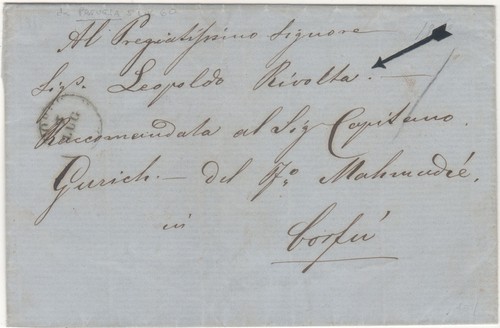 Al Pregiatissimo Signore
Sigr. Leopoldo Rivolta. —
Raccomandata al Sig Capitano
Gurich. — del Po Mahmudié.
in
Corfù